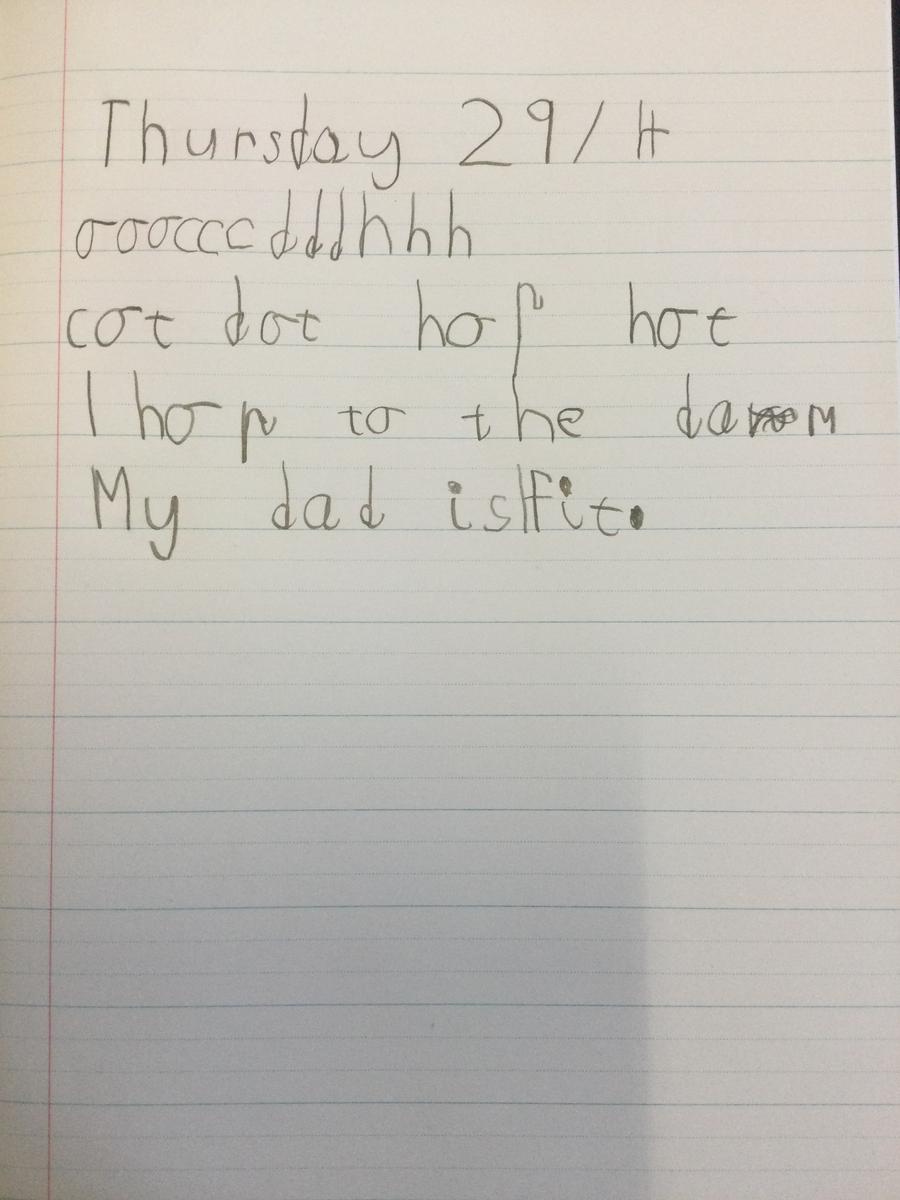 Thursday 29/4
ooocccdddhhh
cot dot hop hot
I hop to the dam
My dad is fit.